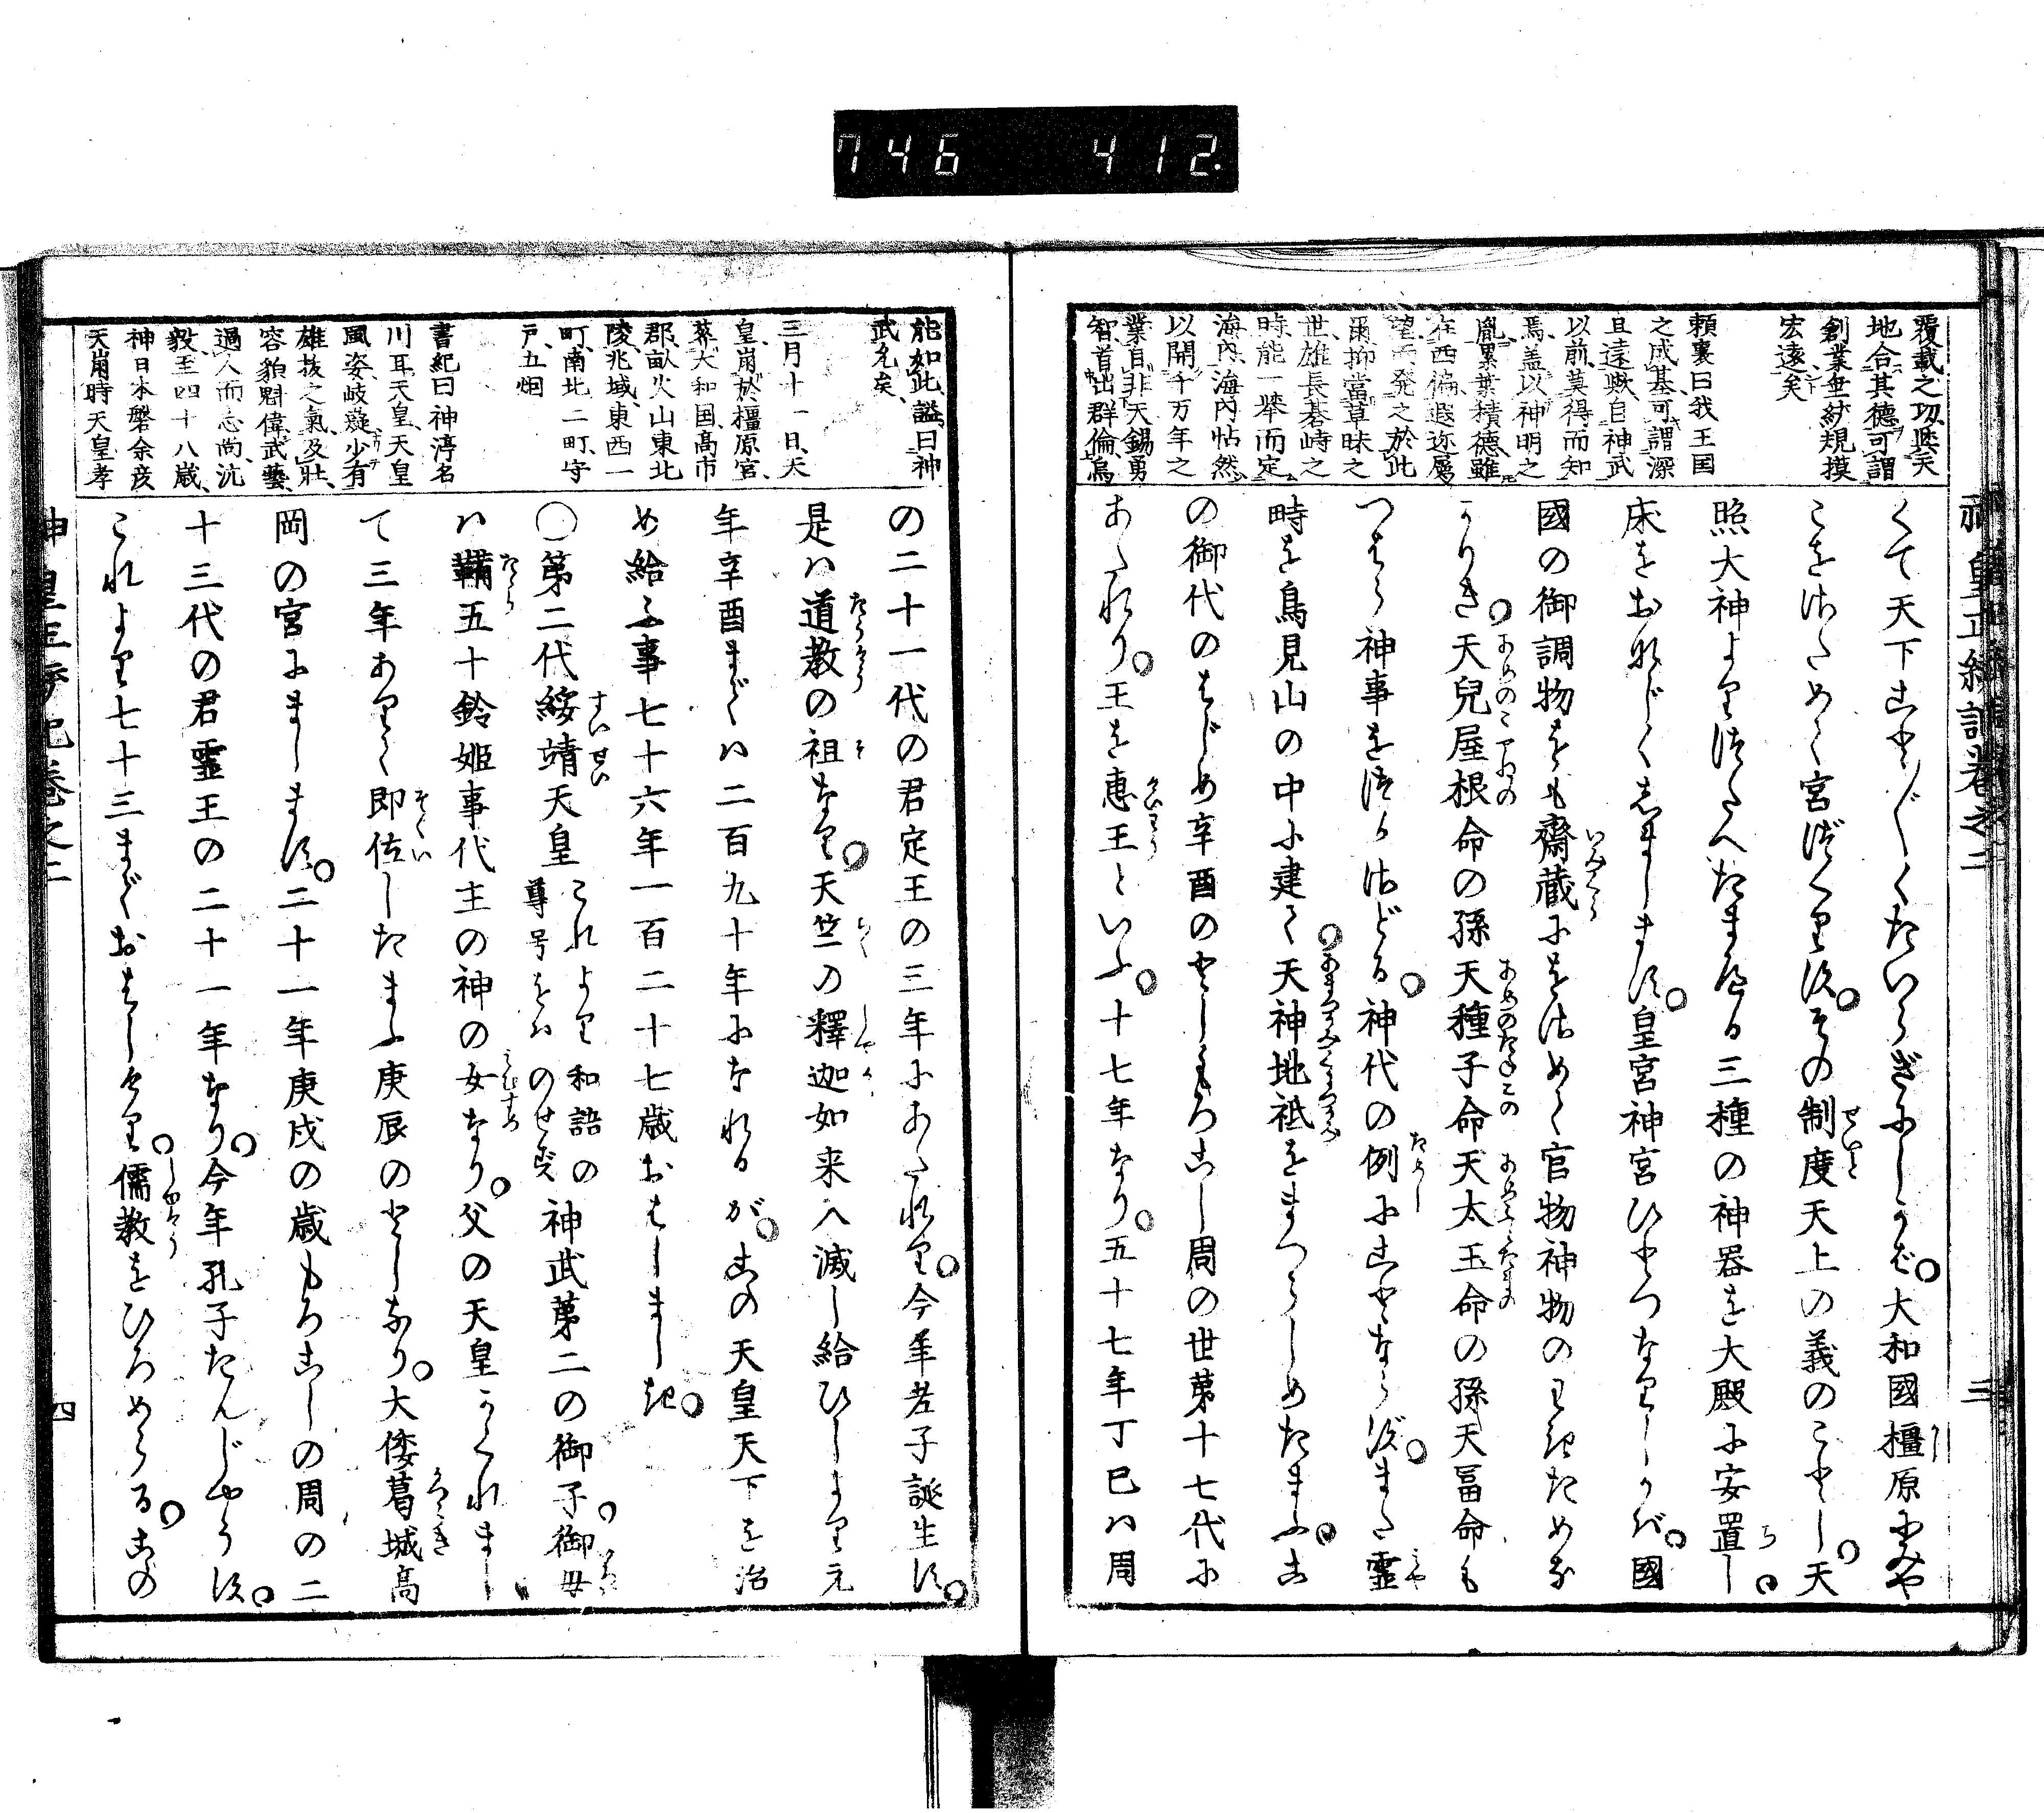 746 412
神皇正統記巻之二
三
覆載之功與天
地合其徳可謂
創業垂統規摸
宏遠矣
頼襄曰我王国
之成基可謂深
且遠歟自神武
以前莫得而知
焉蓋以神明之
胤累業積徳雖
在西偏遐迩屬
望而発之於此
爾抑當草昧之
世雄長碁峙之
時能一挙而定
海内海内帖然
以開千万年之
業自非天錫勇
智首出群倫烏
くて天下こと〴〵くたいらぎにしかば大和國橿原にみや
こをさだめて宮づくりすその制度天上の義のことし天
照大神よりつたへたまへる三種の神器を大殿に安置し
床をおなじくしまします皇宮神宮ひとつなりしかば國
國の御調物をも齋蔵にをさめて官物神物のわきためな
かりき天兒屋根命の孫天種子命天太玉命の孫天冨命も
つはら神事をつかさどる神代の例にことならずまた靈
畤を鳥見山の中に建て天神地祇をまつらしめたまふこ
の御代のはじめ辛酉のとしもろこし周の世第十七代に
あたれり王を惠王といふ十七年なり五十七年丁巳は周
能如此謚曰神
武允矣
三月十一日天
皇崩於橿原宮
葬大和国高市
郡畝火山東北
陵兆域東西一
町南北二町守
戸五烟
書紀曰神渟名
川耳天皇天皇
風姿岐嶷少有
雄抜之氣及壯
容貌魁偉武藝
過人而志尚沆
毅至四十八歳
神日本磐余彦
天崩時天皇孝
の二十一代の君定王の三年にあたれり今年老子誕生す
是は道教の祖なり天竺の釋迦如来入滅し給ひしより元
年辛酉までは二百九十年になれるがこの天皇天下を治
め給ふ事七十六年一百二十七歳おはしましき
〇第二代綏靖天皇これより和語の尊号をはのせず神武第二の御子御母
は鞴五十鈴姫事代主の神の女なり父の天皇かくれまし
て三年ありて即位したまふ庚辰のとしなり大倭葛城高
岡の宮にまします三十一年庚戌の歳もろこしの周の二
十三代の君靈王の二十一年なり今年孔子たんじやうす
これより七十三までおはしけり儒教をひろめらるこの
神皇正統記巻之二
四